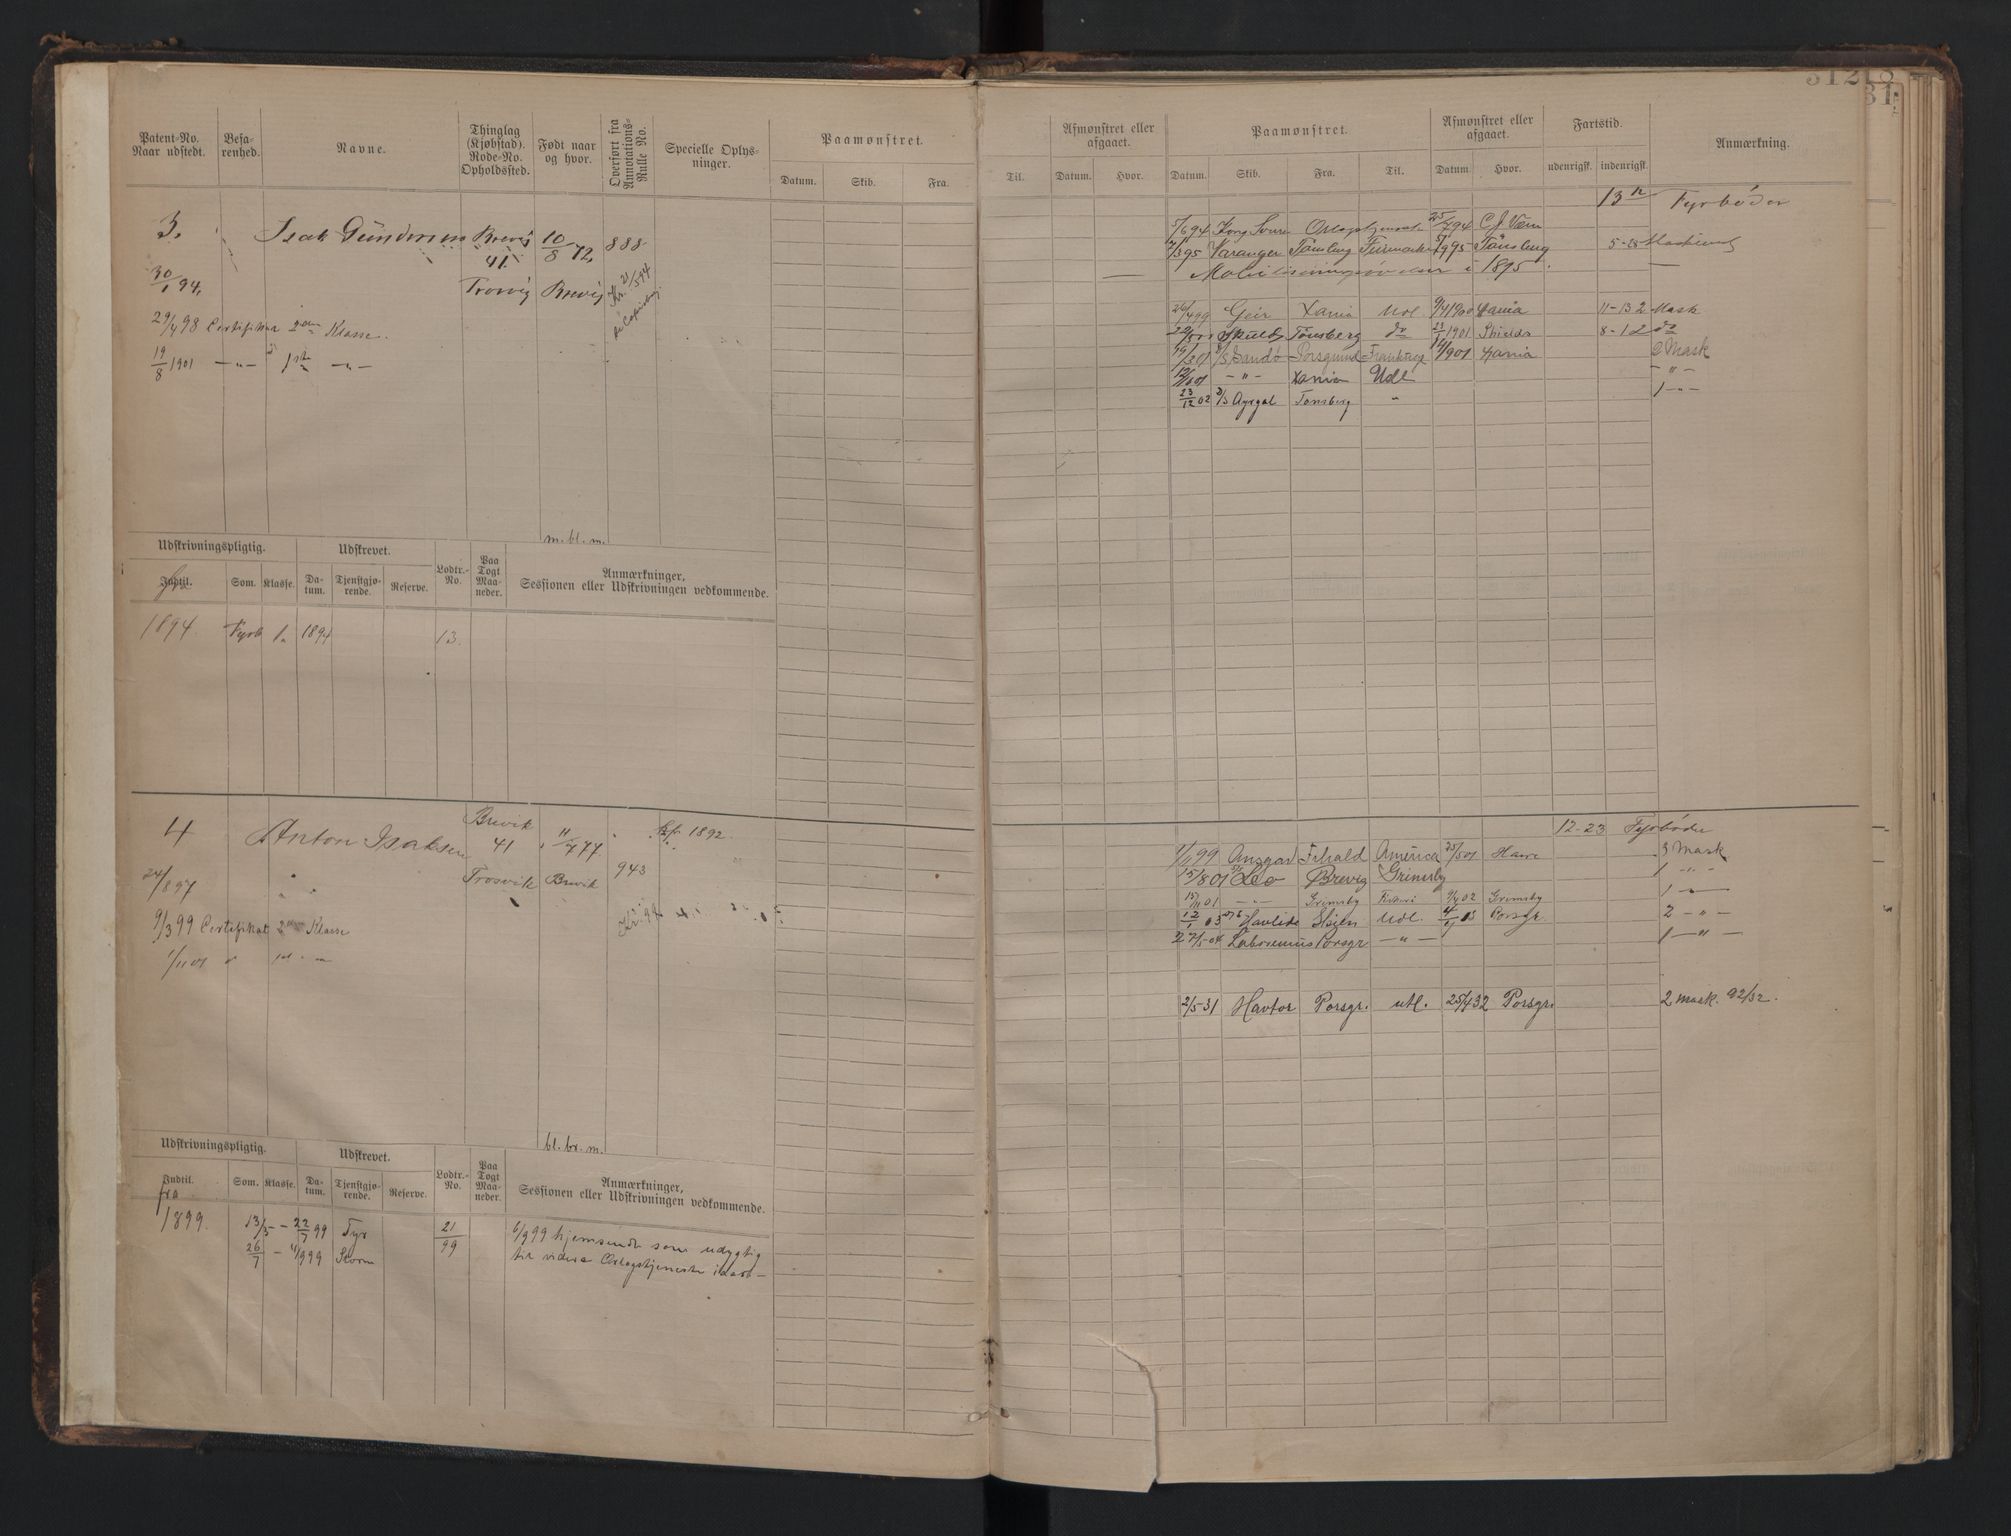 Patent-No. Naar udstedt.
Befa-renhed.
Navne.
Thinglag (Kjøbstad). Rode-No. Opholdssted.
Født naar og hvor.
Overført fra Annotations-Rulle No.
Specielle Oplys-ninger.
Paamønstret.
Datum. Skib. Fra.
3. Isak Gundersen Brevig 10/8 72, 888
41.
30/1 94, Trosvig Brevig
29/4 98 Certifikat 2den Klasse.
19/8 1901 -"- 1ste -"-
m. bl. m.
Udskrivningspligtig. Udskrevet. Lodtr.-No. Paa Togt Maa-neder. Anmærkninger, Sessionen eller Udskrivningen vedkommende.
Indtil. Som. Klasse. Da-tum. Tjenstgjø-rende. Reserve.
fra
1894. Fyrb 1. 1894 13.
4 Anton Isaksen Brevik 11/7 77. 1892.
41
24/8 97 Trosvik Brevik 943
9/3 99 Certifikat 2den Klasse
1/11 01
bl. br. m.
Udskrivningspligtig. Udskrevet. Lodtr.-No. Paa Togt Maa-neder. Anmærkninger, Sessionen eller Udskrivningen vedkommende.
Indtil. Som. Klasse. Da-tum. Tjenstgjø-rende. Reserve.
fra
1899. 13/5 - 22/7 99 Tyr 21/99 6/9 99 hjemsendt som udygtig
26/7 - 4/9 99 Storm til videre Orlogstjeneste
31218
31
Afmønstret eller afgaaet. Paamønstret. Afmønstret eller afgaaet. Fartstid. Anmærkning.
Til. Datum. Hvor. Datum. Skib. Fra. Til. Datum Hvor. udenrigsk. indenrigsk.
13 Fyrbøder
5/6 94 Kong Sverre Orlogstjeneste 25/7 94 C J Værn
95 Varanger Tønsberg Finmarken 95 Tønsberg 5-
Mobiliseringsøvelser i 1895.
26/4 99 Geir Xania Udl 9/4 1900 Xania 11-13 2 Mask
Skuld Tönsberg do 23/ 1901 Shields 8-12 do
D/S Sandö Porsgrund 901 Xania 2 Mask
12/ 01 -"- Xania Udl -"-
23/12 02 D/S Tønsberg " 1 -"-
12-23 Fyrbøder
1/11 99 Ansgar America 25/5 01 Havre 3 Mask
15/8 01 D/S Leo Brevig Grimsby 1 -"-
15/11 01 -"- Grimsby 9/4 02 Grimsby 1 -"-
12/1 03 Havlide Skien Udl. 4/6 03 Porsgr. 2 -"-
27/5-04 Laboremus Porsgr. -"- 1 -"-
2/5-31 Havtor Porsgr. utl. 25/4 32 Porsgr. 2 mask. 92/32.